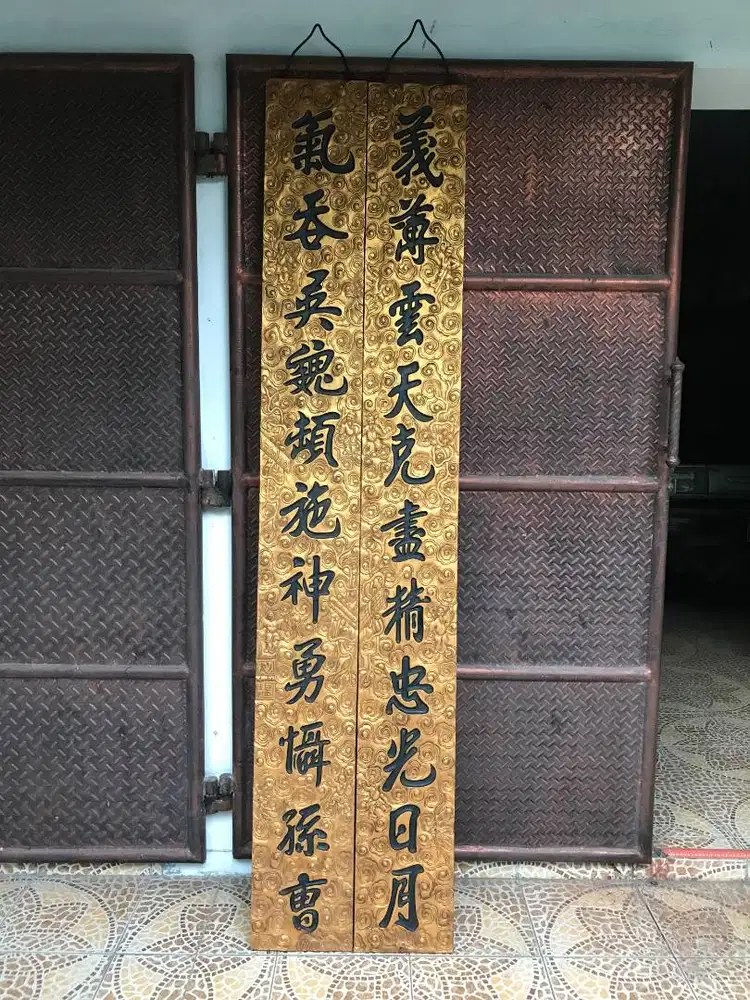 義薄雲天克盡精忠光日月
氣吞吳魏頻施神勇懾孫曹